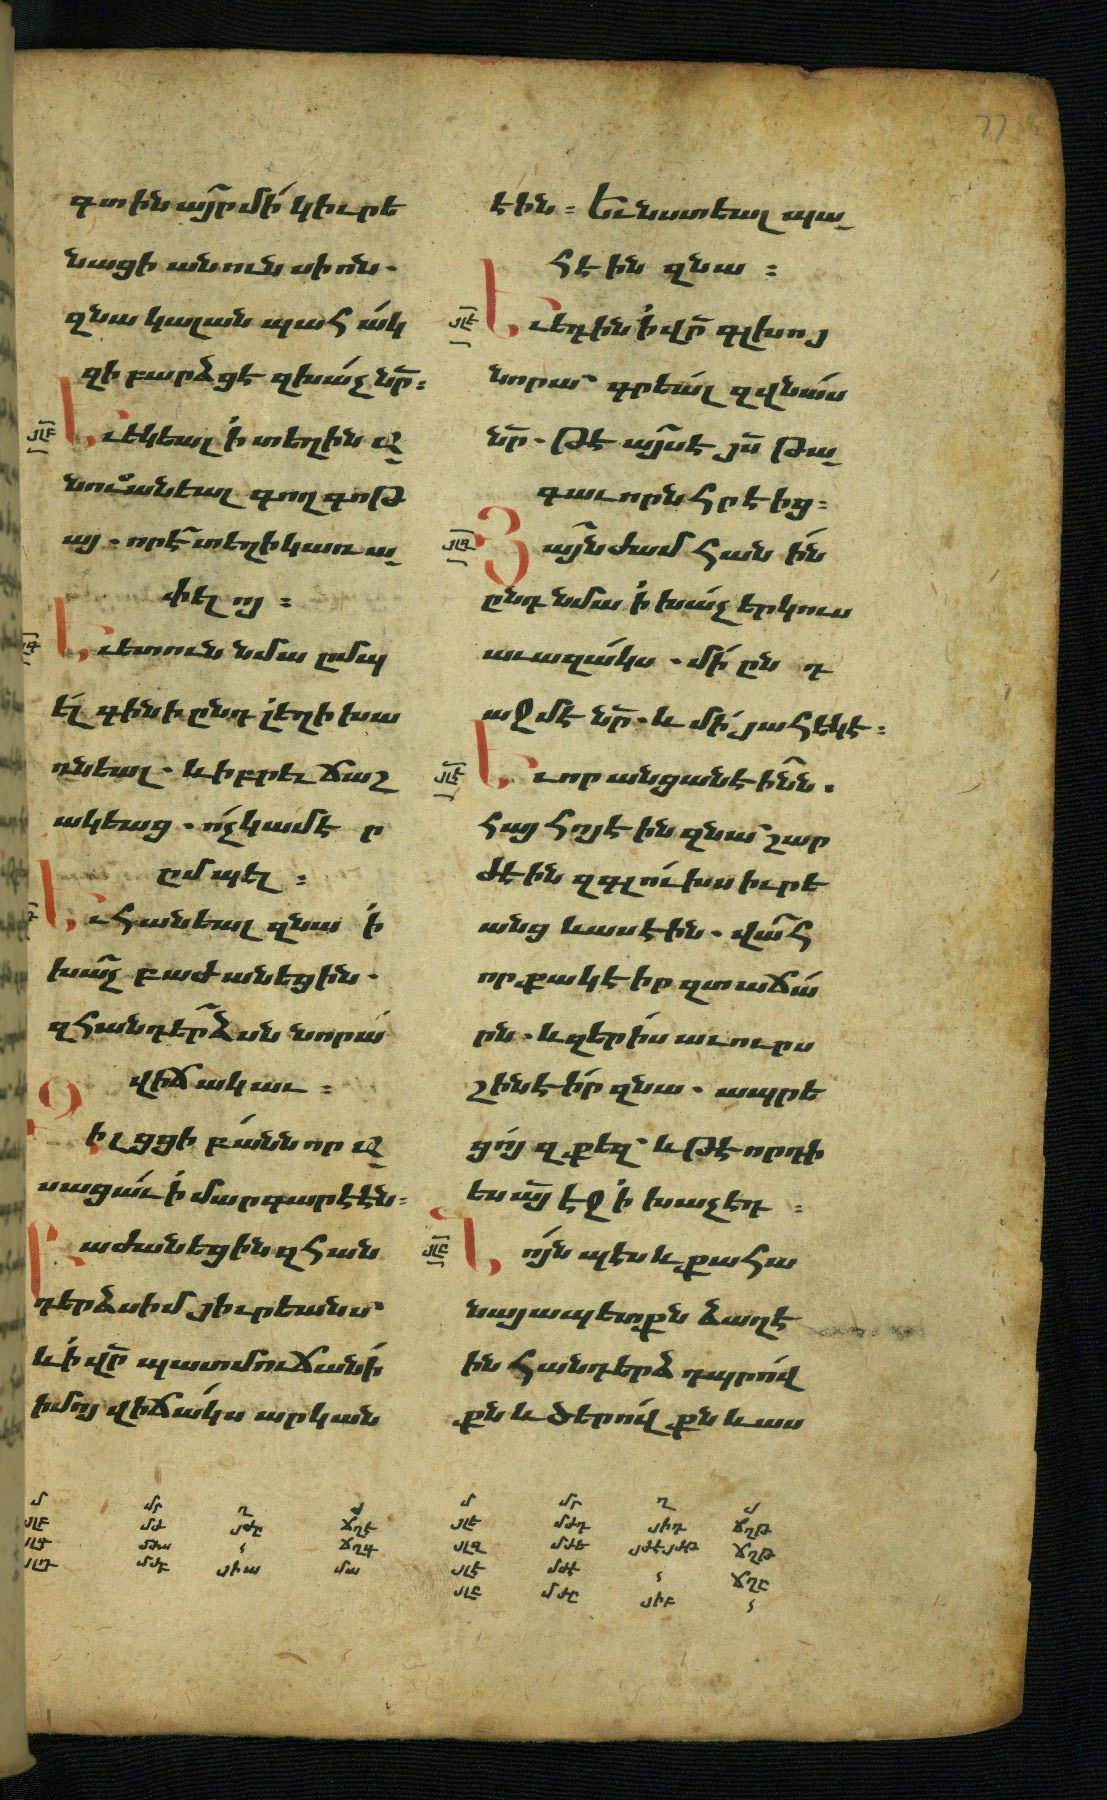 77
գտին այ̃ր մի՛ կիւրե
նացի անուն սիո՛ն.
զնա կալան պահա՛կ
զի բարձցէ զխա՛չ նր̃։
յլբ
Եւ եկեալ ՛ի տեղին ա
նուանեալ գողգոթ
այ. որ է̃ տեղի կառա
փելոյ։
Եւ ետուն նմա ըմպ
ե՛լ գինի ընդ լեղի խա
ռնեալ. և իբրեւ ճաշ
ակեաց. ո՛չ կամէ ը
ըմպել։
Եւ հանեալ զնա ՛ի
խա՛չ բաժանեցին.
զհանդե՛րձսն նորա՛
վիճակաւ։
Զի լցցի բա՛նն որ ա
սացա՛ւ ՛ի մարգարէէն։
Բաժանեցին զհան
դերձս իմ յիւրեանս՝
և ՛ի վր̃ պատմուճանի՛
իմոյ վիճա՛կս արկան
էին։ Եւ նստեալ պա
հէին զնա։
յլե
Եւ եդին ՛ի վր̃ գլխոյ
նորա՝ գրեա՛լ զվնա՛ս
նր̃. թէ այ̃ս է յս̃ թա
գաւորն հրէից։
յլզ
Յայ̃նժամ հանի՛ն
ընդ նմա ՛ի խա՛չ երկուս
աւազա՛կս. մի՛ ընդ
աջմէ նր̃. և մի՛ յահեկէ։
յլէ
Եւ որ անցանէի՛ն.
հայհոյէին զնա՝ շար
ժէին զգլո՛ւխս իւրե
անց և ասէին. վա՛հ
որ քակէիր զտաճա՛
րն. և զերի՛ս աւուրս
շինէի՛ր զնա. ապրե
ցո՛յ զքեզ՝ և թէ որդի
ես այ̃ էջ ՛ի խաչէդ։
յլը
Նո՛յնպէս և քահա
նայապետքն ձաղէ
ին հանդերձ դպրո՛վ
քն և ծերո՛վքն և աս